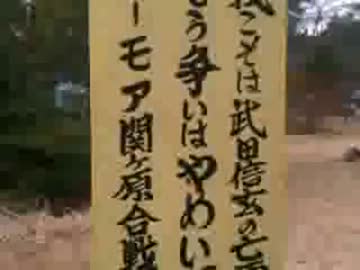 我こそは武田信玄の亡霊
もう争いはやめい
ーモア関ヶ原合戦